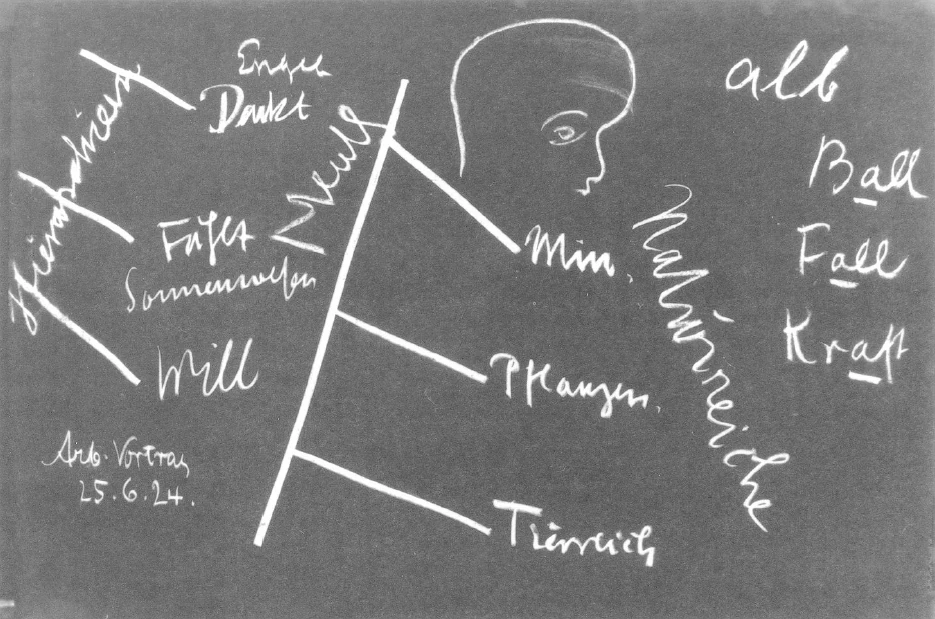 Hierarchieen
Engel
Denkt
Fühlt
Sonnenwesen
Will
Arb. Vortrag
25.6.24.
Mensch
Min.
Pflanzen.
Tierreich
Naturreiche
alb
Ball
Fall
Kraft